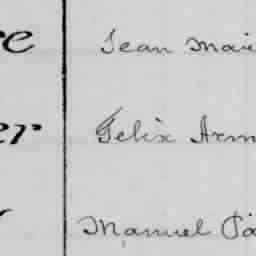 re Jean Marie
er Felix Arm
r Manuel Pa